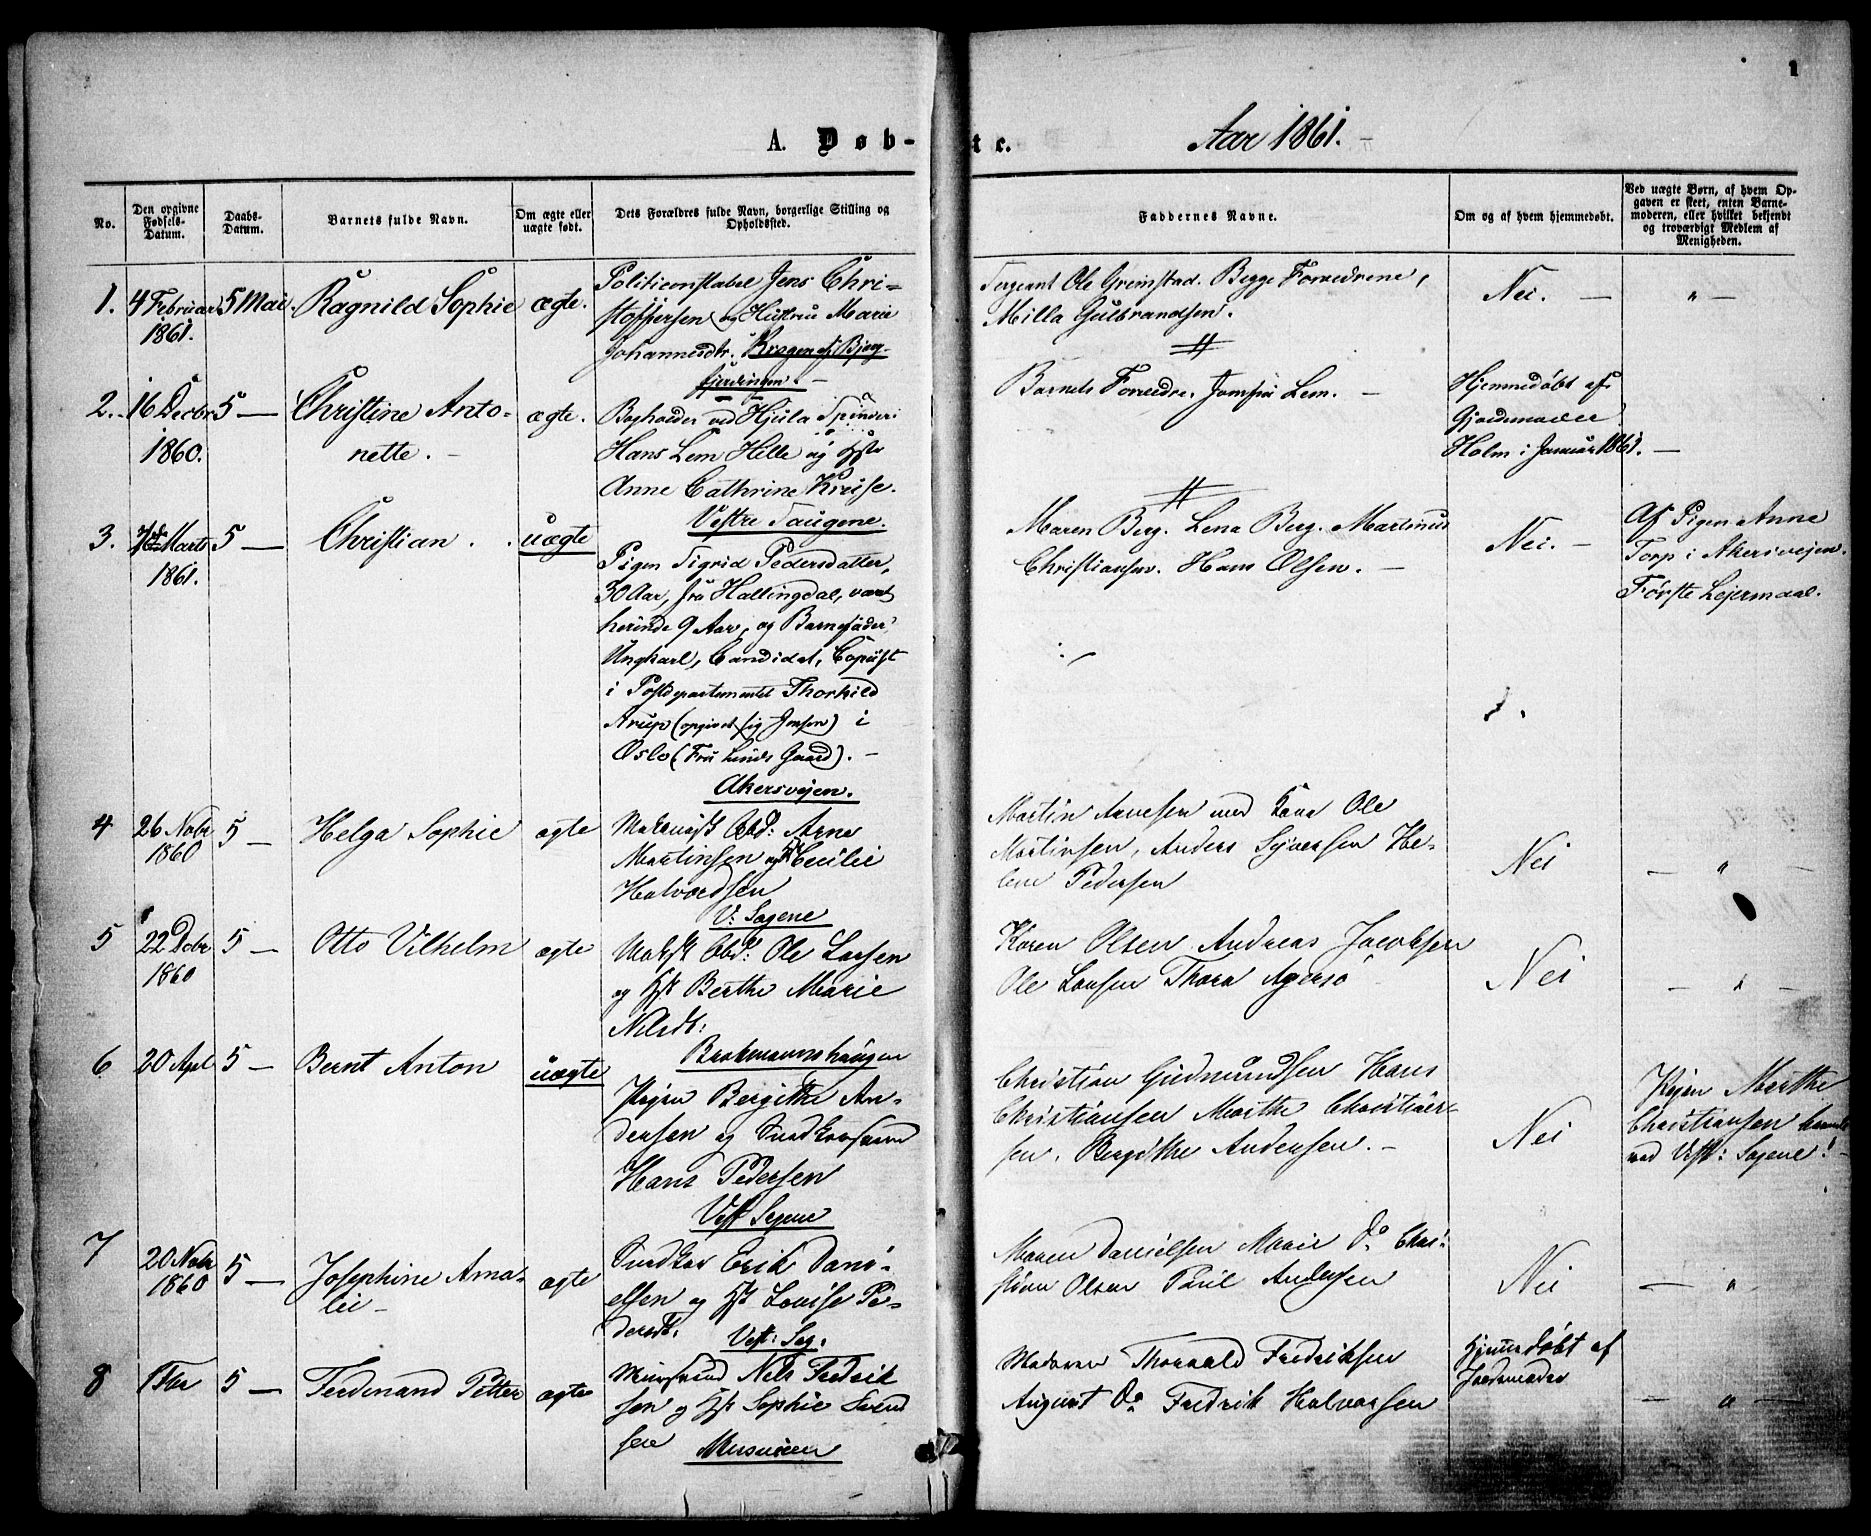 1
A. Døb-
te.
Aar 1861.
No.
Den opgivne
Fødsels-
Datum.
Daabs-
Datum.
Barnets fulde Navn.
Om ægte eller
uægte født.
Dets Forældres fulde Navn, borgerlige Stilling og
Opholdssted.
Faddernes Navne.
Om og af hvem hjemmedøbt.
Ved uægte Børn, af hvem Op-
gaven er skeet, enten Barne-
moderen, eller hvilket bekjendt
og troværdigt Medlem af
Menigheden.
1.
4 Februar
1861.
5 Mai.
Ragnild Sophie
ægte.
Politiconstabel Jens Chri-
stoffersen og Hustru Marie
Johannesdtr. Krogen af Bjerg-
fjerdingen.
Sergeant Ole Grimstad. Begge Forældrene,
Milla Gulbrandsen.
Nei. —
" —
2.
16 Decbr
1860.
5 —
Christine Anto-
nette. -
ægte.
Bogholder ved Hjula Spinderi
Hans Lem Hille og Hst
Anne Cathrine Kruse.
Vestre Saugene.
Barnets Forældre. Jomfru Lem. -
Hjemmedøbt af
Gjordemoder
Holm i Januar 1861. —
3.
Marts
1861.
5 —
Christian.
uægte
Pigen Sigrid Pedersdatter,
30 Aar, fra Hallingdal, været
herinde 9 Aar, og Barnefader
Ungkarl, Candidat, Copiist
i Postdepartementet Thorkild
Arup (opgivet sig Jonsen) i
Oslo (Fru Linds Gaard). -
Akersvejen.
Maren Berg. Lena Berg. Martinus
Christiansen. Hans Olsen. -
Nei. -
Af Pigen Anne
Torp i Akersvejen.
Første Lejermaal.
4
26 Novbr
1860
5 —
Helga Sophie
ægte
Mekanisk Arbd: Arne
Martinsen og Hst Cecilie
Halvordsen
V: Sagene
Martin Arnesen med Kone Ole
Martinsen, Anders Syversen He-
lene Pedersen
Nei
— " —
5
22 Dcbr
1860
5 —
Otto Vilhelm
ægte
Arbd: Ole Larsen
og Hst Berthe Marie
Nilsdt:
Beckmannshaugen
Karen Olsen Andreas Jacobsen
Ole Larsen Thora Agersø
Nei
— " —
6
20 Apl
5 —
Bernt Anton
uægte
Pigen Bergithe An-
dersen og Snedkersvend
Hans Pedersen
Vest Sagene
Christian Gudmundsen Hans
Christiansen Marthe Christian-
sen. Bergithe Andersen. -
Nei
Pigen Marthe
Christiansen
ved Vest: Sagene!
7
20 Novbr
1860
5 —
Josephine Ama-
lie -
ægte
Snedker Erik Dani-
elsen og Hst Louise Pe-
dersdt.
Vest: Sag:
Maren Danielsen Marie Do Chri-
stian Olsen Paul Andersen
Nei
— "
8
1 Fbr
5 —
Ferdinand Petter
ægte
Muursvend Nils Fredrik
sen og Hst Sophie Svend
sen
Maderen Thorvald Fredriksen
August Do Fredrik Halvorsen
Hjemmedøbt af
Jordemoder
— " —